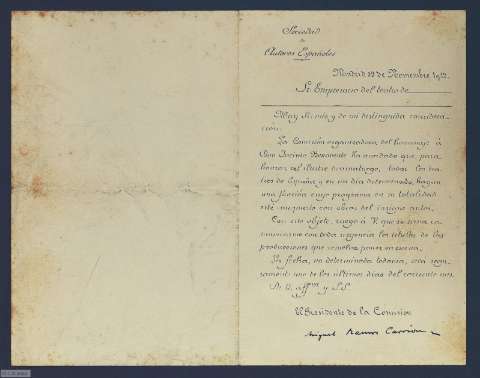 Sociedad
de
Autores Españoles
Madrid de Noviembre
Sr Empresario del teatro de
Muy Sr mio y de mi distinguida considera-
ción:
La Comisión organizadora del homenaje á
Don Jacinto Benavente ha acordado que, para
honrar al ilustre dramaturgo, todos los tea-
tros de España, y en un dia determinado, hagan
una función cuyo programa en su totalidad
esté compuesto con obras del insigne autor.
Con este objeto, ruego á V. que se sirva co-
municarme con toda urgencia los titulos de las
producciones que resuelva poner en escena.
La fecha, no determinada todavia, será segu-
ramente uno de los últimos dias del corriente mes.
De V. aff.mo y S.S.
El Presidente de la Comisión
Miguel Ramos Carrión